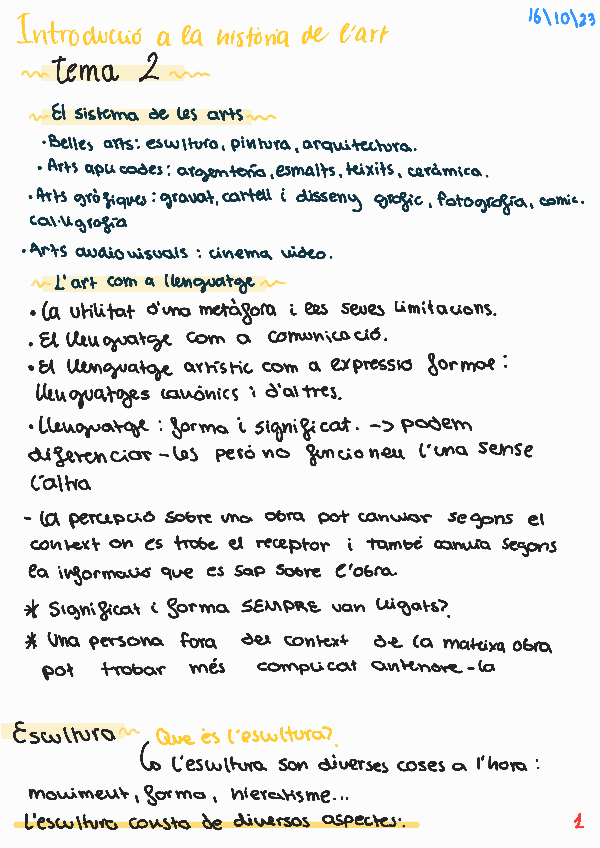 16\10\23
Introducció a la història de l'art
tema 2
El sistema de les arts
• Belles arts: escultura, pintura, arquitectura.
• Arts aplicades: argenteria, esmalts, teixits, ceràmica.
• Arts gràfiques: gravat, cartell i disseny gràfic, fotografia, comic.
cal·ligrafia
• Arts audiovisuals: cinema video.
L'art com a llenguatge
• La utilitat d'una metàfora i les seves limitacions.
• El llenguatge com a comunicació.
• El llenguatge artístic com a expressió formal:
llenguatges canònics i d'altres.
• Llenguatge: forma i significat. -> podem
diferenciar-les però no funcionen l'una sense
l'altra
- La percepció sobre una obra pot canviar segons el
context on es trobe el receptor i també canvia segons
la informació que es sap sobre l'obra.
* Significat i forma SEMPRE van lligats?
* Una persona fora del context de la mateixa obra
pot trobar més complicat entendre-la
Escultura Que és l'escultura?
L'escultura son diverses coses a l'hora:
moviment, forma, hieratisme...
L'escultura consta de diversos aspectes:
1